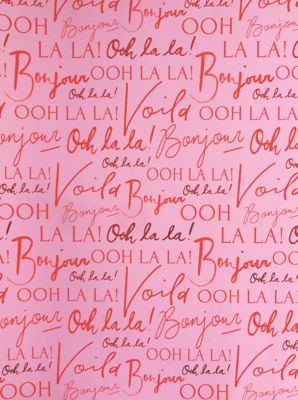 OOH Bonjour Ooh la la! OOH Bonjour
LA LA! Bonjour LA LA!
Bonjour OOH LA LA! OOH LA LA!
Ooh la la! Voila Ooh la la!
OOH LA LA! OOH LA LA!
Bonjour Ooh la la! Bonjour Ooh la la!
OOH LA LA! Voila OOH LA LA! Voila
Ooh la la! Ooh la la!
OOH Bonjour Ooh la la! OOH Bonjour
LA LA! Bonjour LA LA!
Bonjour OOH LA LA! OOH LA LA!
Ooh la la! Voila Ooh la la!
OOH LA LA! OOH LA LA!
Bonjour Ooh la la! Bonjour Ooh la la!
OOH LA LA! Voila OOH LA LA! Voila
Ooh la la! Ooh la la!
OOH Bonjour OOH